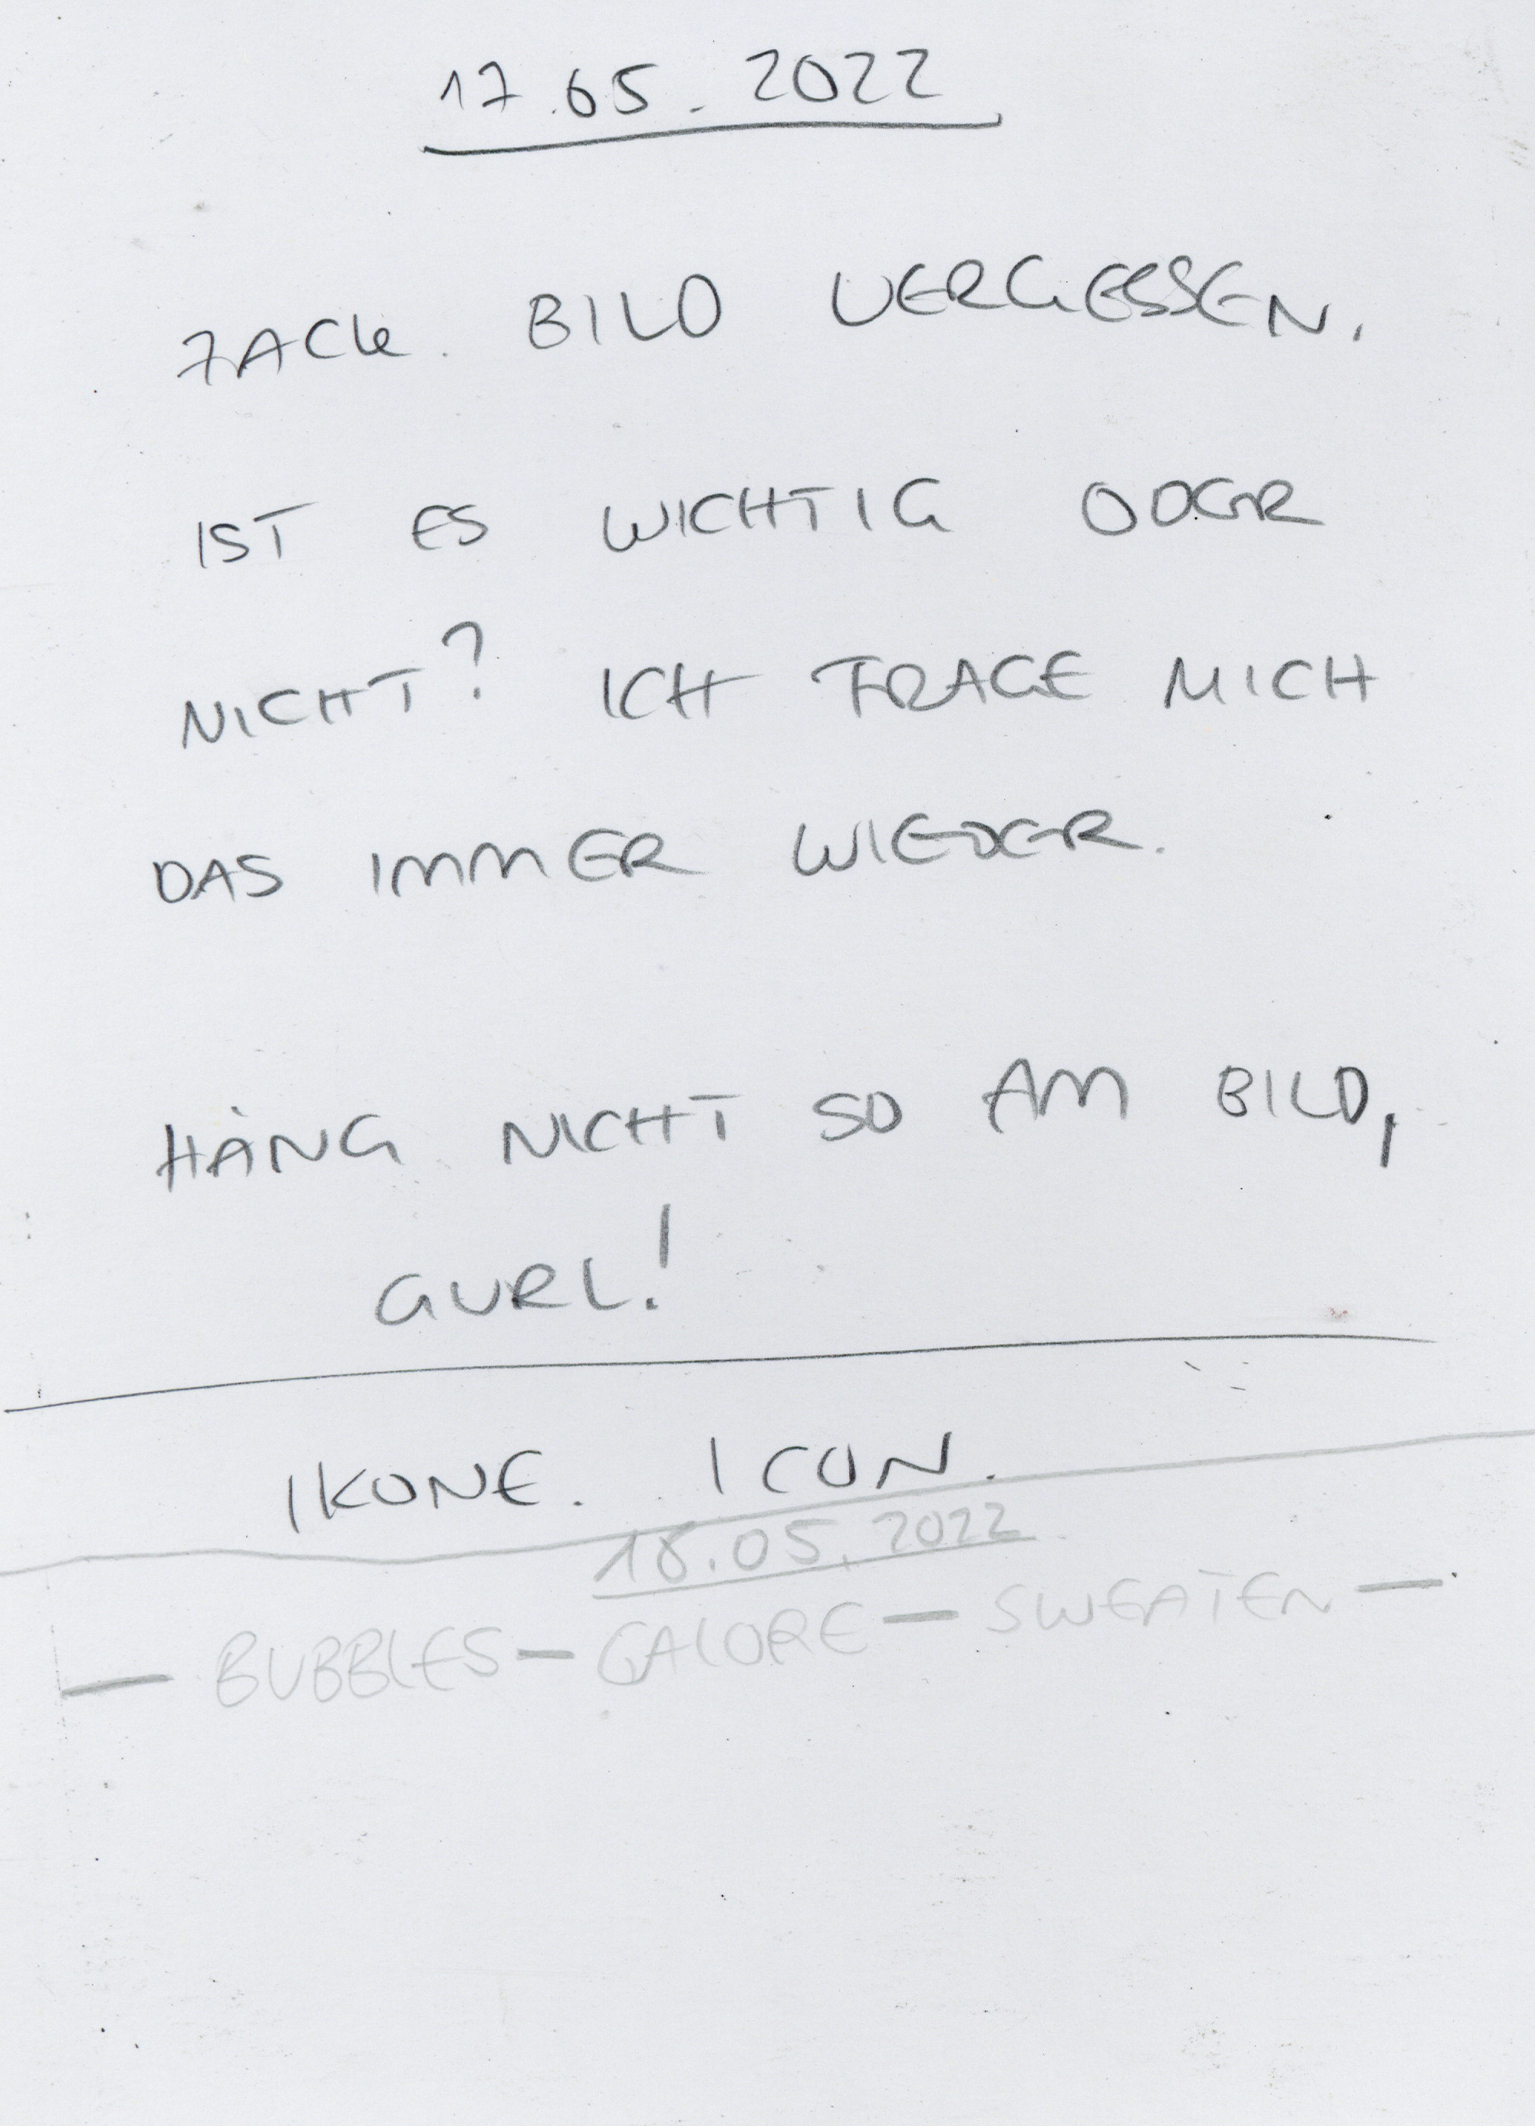 17.05.2022
ZACK. BILD VERGESSEN.
IST ES WICHTIG ODER
NICHT? ICH FRAGE MICH
DAS IMMER WIEDER.
HÄNG NICHT SO AM BILD,
GURL!
IKONE. ICON.
18.05.2022
— BUBBLES — GALORE — SWEATEN —